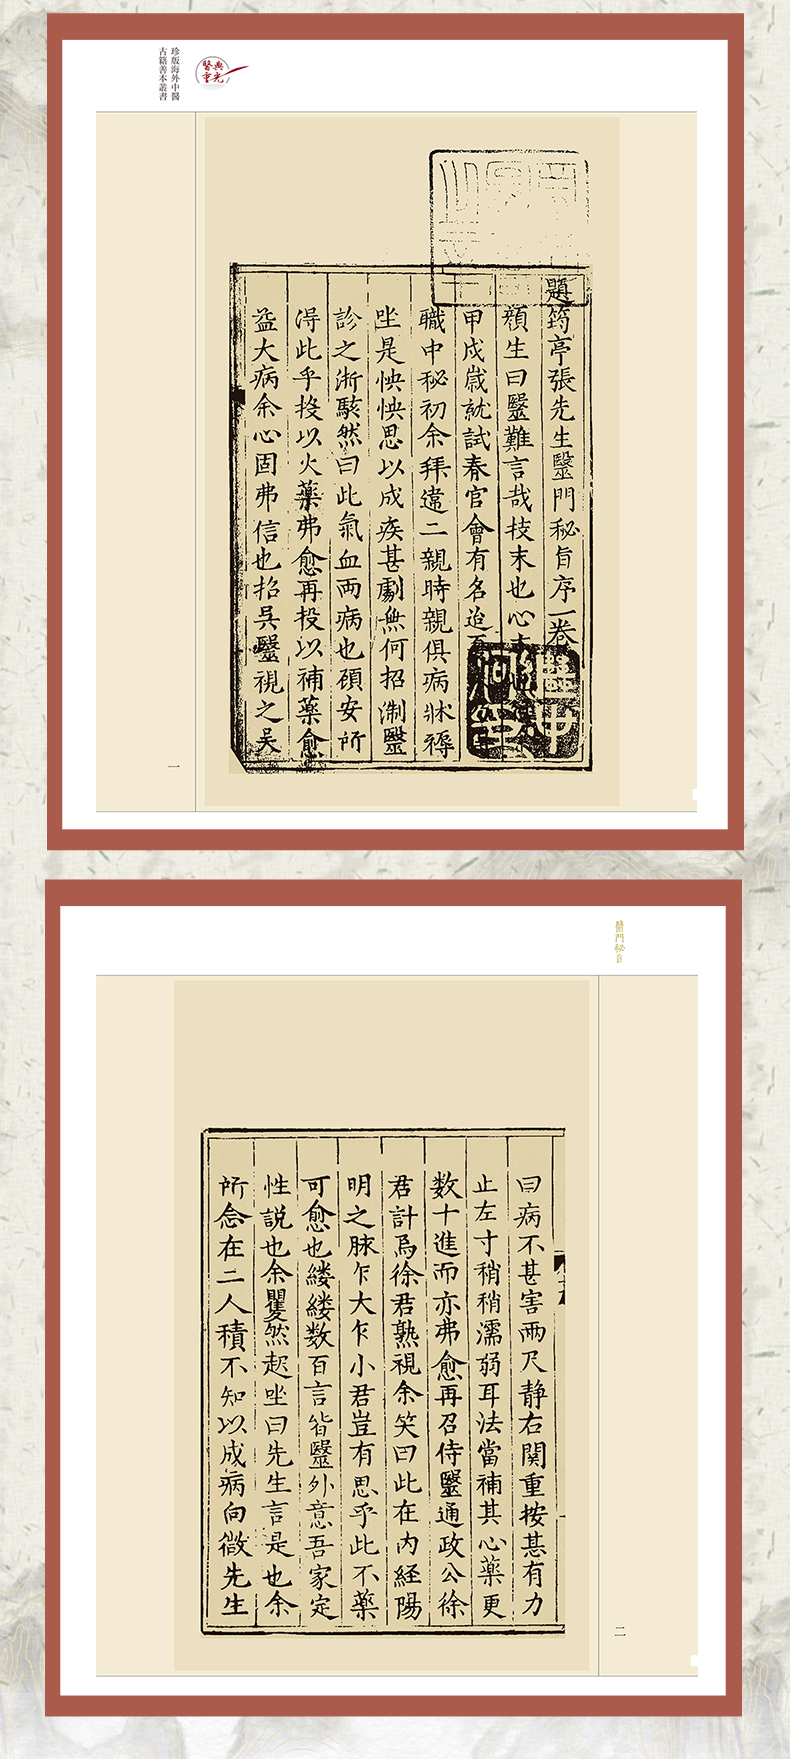 珍版海外中醫
古籍善本叢書
醫典
重光
題筠亭張先生毉門秘旨序一卷
顏生曰毉難言哉技末也心
甲戍嵗就試春官會有名迨
職中秘初余拜違二親時親俱病牀褥
坐是怏怏思以成疾甚劇無何招淛毉
診之浙駭然曰此氣血両病也碩安所
淂此乎投以火藥弗愈再投以補藥愈
益大病余心固弗信也招吳毉視之吴
一
醫門秘旨
曰病不甚害両尺静右関重按甚有力
止左寸稍稍濡弱耳法當補其心藥更
数十進而亦弗愈再召侍毉通政公徐
君計焉徐君熟視余笑曰此在内経陽
明之脉乍大乍小君豈有思乎此不藥
可愈也縷縷数百言皆毉外意吾家定
性説也余矍然起坐曰先生言是也余
所念在二人積不知以成病向微先生
二